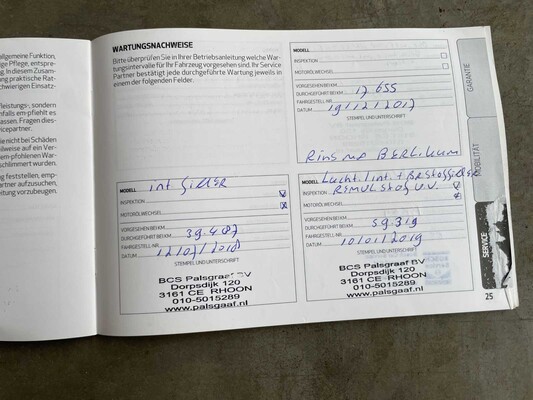 allgemeine Funktion,
ige Pflege, entspre-
ng. In diesem Zusam-
ng praktische Rat-
chwierigen Einsatz-
fleistungs-, sondern
nfalls em-pfiehlt es
assen. Fragen dies-
icepartner.
nie bei Schäden
eilweise auf ein Ver-
dem-pfohlenen War-
schlimmert wurden.
ng feststellen, emp-
artner aufzusuchen,
eitung vorzubeugen.
WARTUNGSNACHWEISE
Bitte überprüfen Sie in Ihrer Betriebsanleitung welche War-
tungsintervalle für Ihr Fahrzeug vorgesehen sind. Ihr Service
Partner bestätigt jede durchgeführte Wartung jeweils in
einem der folgenden Felder.
MODELL
INSPEKTION
MOTORÖLWECHSEL
VORGESEHEN BEI KM
DURCHGEFÜHRT BEI KM 17 655
FAHRGESTELL NR.
DATUM 19/12/2017
STEMPEL UND UNTERSCHRIFT
MODELL int filter
INSPEKTION
MOTORÖLWECHSEL
VORGESEHEN BEI KM
DURCHGEFÜHRT BEI KM 39.487
FAHRGESTELL NR.
DATUM 12/07/2018
STEMPEL UND UNTERSCHRIFT
BCS Palsgraaf BV
Dorpsdijk 120
3161 CE RHOON
010-5015289
www.palsgaaf.nl
MODELL Lucht. int. + Brstoffilter
INSPEKTION REMVLStof V.V.
MOTORÖLWECHSEL
VORGESEHEN BEI KM
DURCHGEFÜHRT BEI KM 59.319
FAHRGESTELL NR.
DATUM 10/01/2019
STEMPEL UND UNTERSCHRIFT
BCS Palsgraaf BV
Dorpsdijk 120
3161 CE RHOON
010-5015289
www.palsgaaf.nl
GARANTIE
MOBILITÄT
SERVICE
25